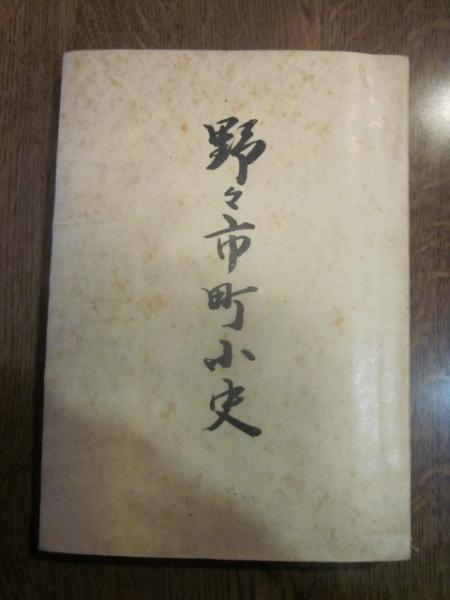 野々市町小史